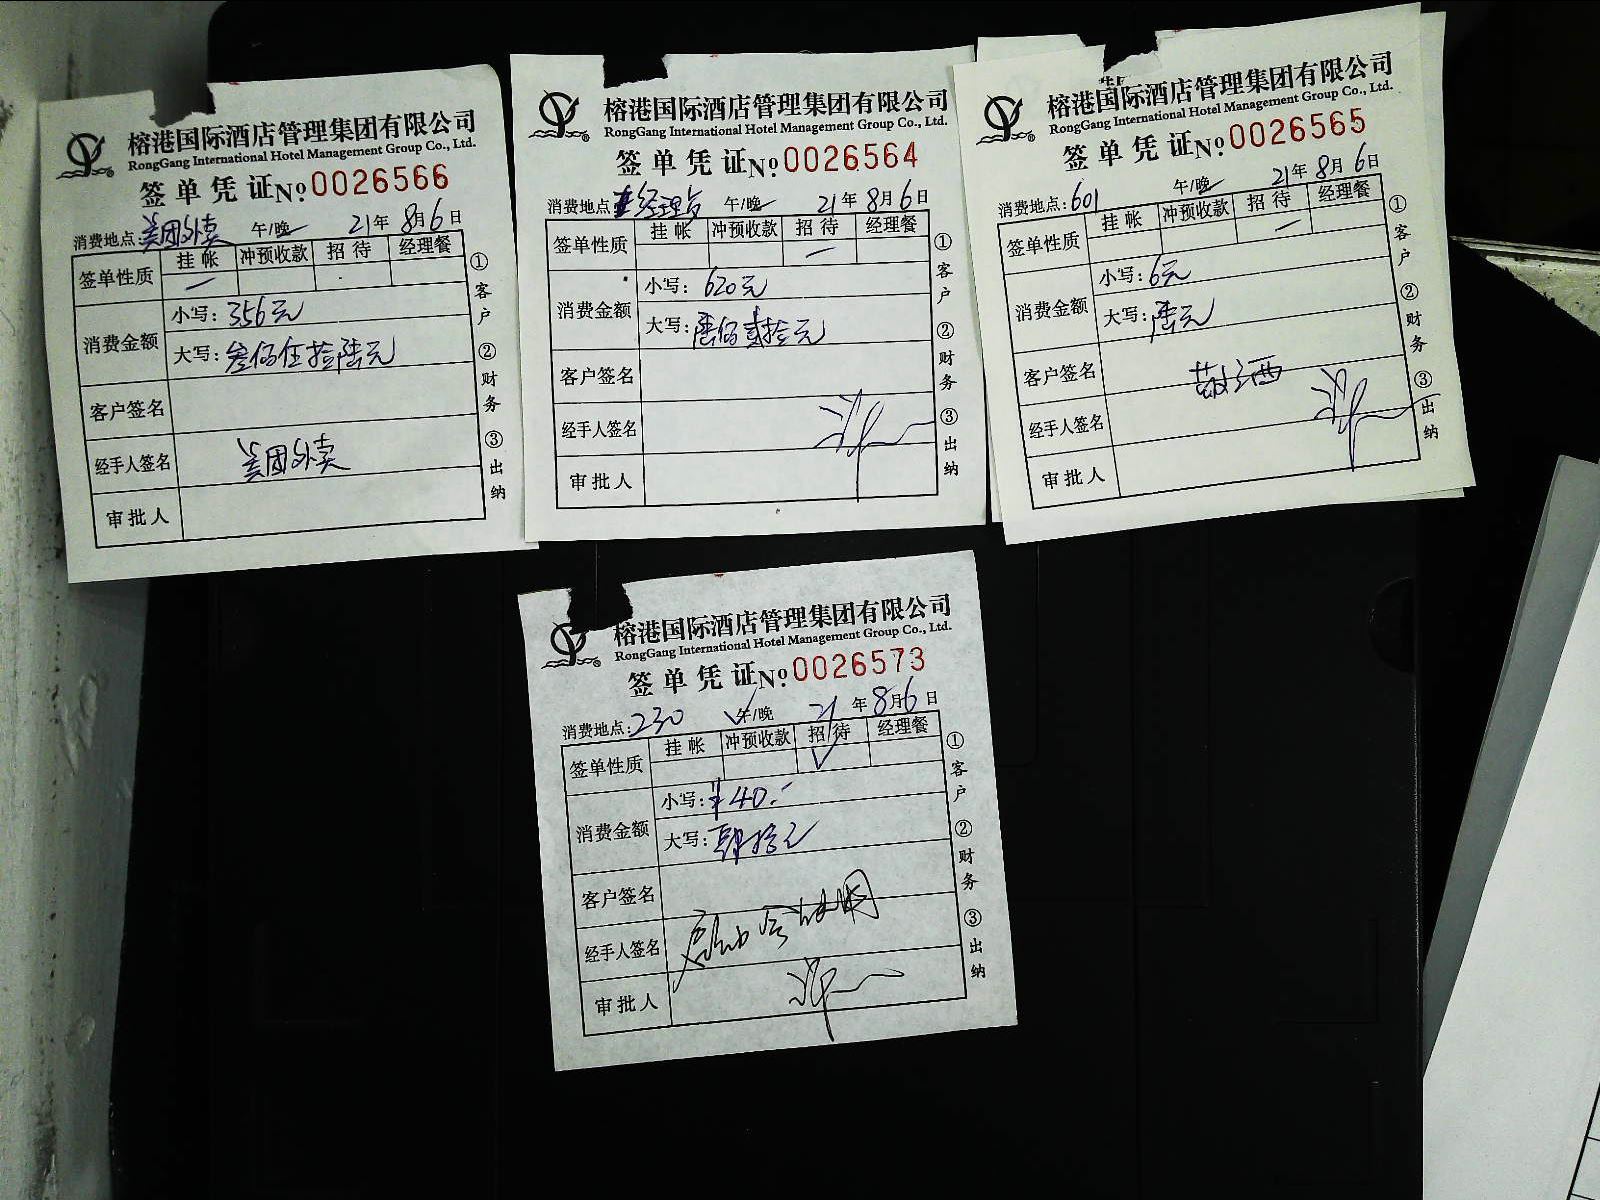 榕港国际酒店管理集团有限公司
RongGang International Hotel Management Group Co., Ltd.
签单凭证 No 0026566
消费地点:美团外卖 午/晚 21年8月6日
签单性质 挂帐 冲预收款 招待 经理餐
消费金额
小写:356元
大写:叁佰伍拾陆元
客户签名
经手人签名 美团外卖
审批人
①客户 ②财务 ③出纳
榕港国际酒店管理集团有限公司
RongGang International Hotel Management Group Co., Ltd.
签单凭证 No 0026564
消费地点: 午/晚 21年8月6日
签单性质 挂帐 冲预收款 招待 经理餐
消费金额
小写:620元
大写:陆佰贰拾元
客户签名
经手人签名
审批人
①客户 ②财务 ③出纳
榕港国际酒店管理集团有限公司
RongGang International Hotel Management Group Co., Ltd.
签单凭证 No 0026565
消费地点:601 午/晚 21年8月6日
签单性质 挂帐 冲预收款 招待 经理餐
消费金额
小写:6元
大写:陆元
客户签名 敬酒
经手人签名
审批人
①客户 ②财务 ③出纳
榕港国际酒店管理集团有限公司
RongGang International Hotel Management Group Co., Ltd.
签单凭证 No 0026573
消费地点:230 午/晚 21年8月6日
签单性质 挂帐 冲预收款 招待 经理餐
消费金额
小写:¥40.-
大写:肆拾元
客户签名
经手人签名
审批人
①客户 ②财务 ③出纳